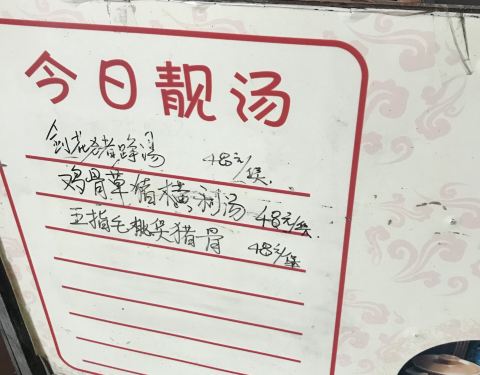 今日靓汤
剑花猪踭汤 48元/煲
鸡骨草猪横利汤 48元/煲
五指毛桃煲猪骨 48元/煲